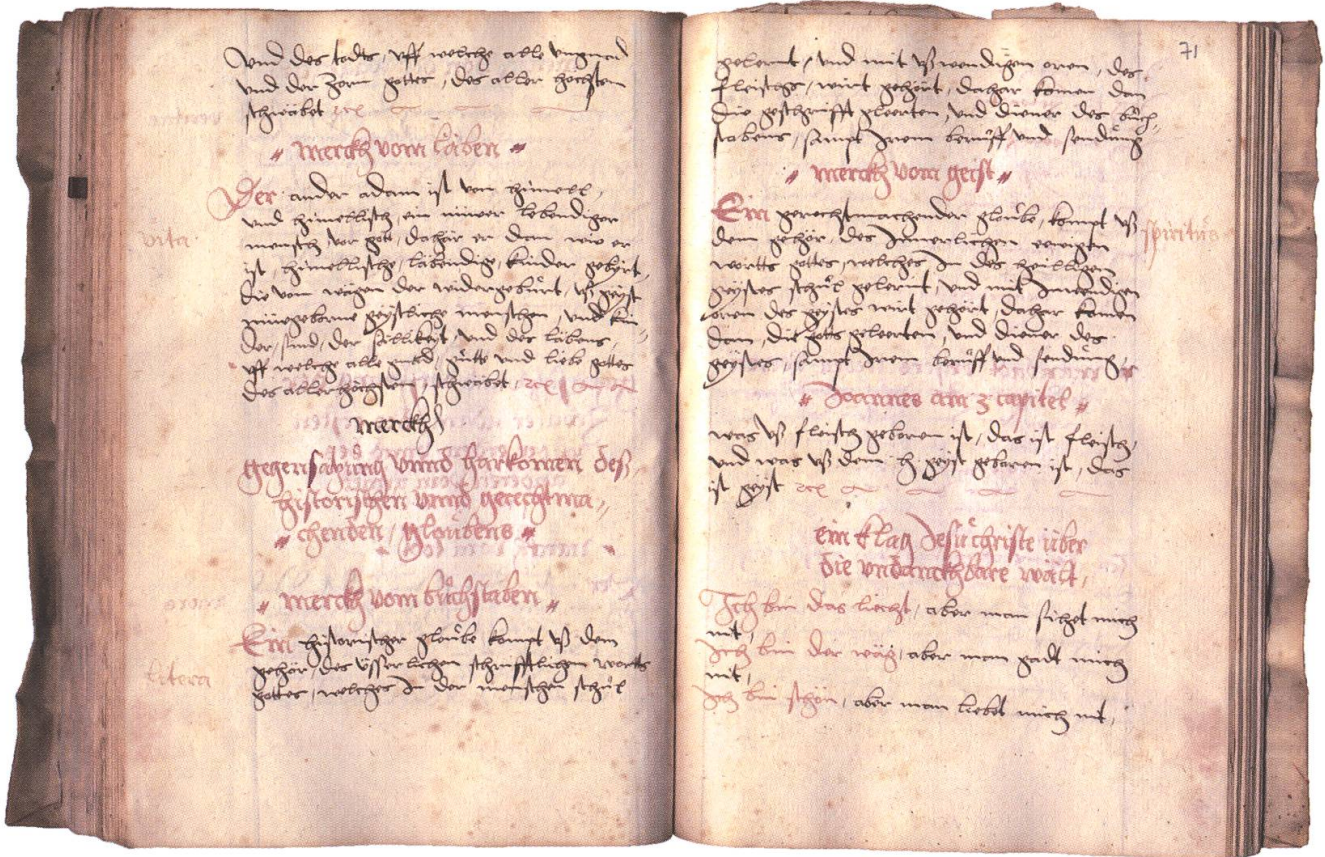 Vnd des todts, vff welche alle vngnad
vnd der Zorn gottes, des aller höchsten
schwäbet
merckh vom läben
vita
Der ander adam ist vom himell,
vnd himellisch, ein lebendiger
mensch vor gott, dahär er dann wie er
ist, himellische, läbendig, kinder gebirt,
die vom wägen der widergeburt, vß geyst
geystliche menschen, vnd kin-
der, sind, der sällikeyt, vnd des läbens,
vff welche alle gnad, gütte vnd liebe gottes
des aller höchsten, schwäbet,
merckh
gegensatzung vnnd harkomen deß
historischen vnnd gerechtma,
chenden, gloubens
merckh vom buͦchstaben
litera
Ein historischer gloube kompt vß dem
gehör, des üsserlichen schrifftlichen worts
gottes, welches in der menschen schuͦl
71
gelernt, vnd mit vßwendigen oren, des
fleischs, wirt gehört, dahar komen dan
die gschrifft gleerten, vnd diener des buͦch-
stabens, sampt irem beruͦff vnd sendung
merckh vom geist
Ein gerechtmachender gloube, kompt vß
spiritus
dem gehör, des innerlichen ewigen
wortts gottes, welches in des heilligen
geystes schuͦl gelernt, vnd mit inwendigen
oren des geystes wirt gehört, dahar komen
dann, die gotts geleerten, vnd diener des
geystes, sampt irem beruͦff vnd sendung,
Joannes am 3 capitel
was vß fleisch geboren ist, das ist fleisch,
vnd was vß dem h geyst geboren ist, das
ist geyst
ein klag Jesu christe über
die vndanckhbare wält,
Ich bin das liecht, aber man sichet mich
nit,
Ich bin der wäg, aber man gadt mich
nit,
Ich bin schön, aber man liebet mich nit,